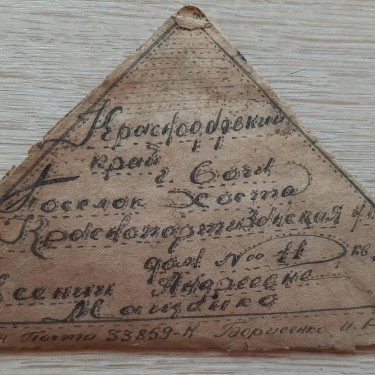 Краснодарский
край
г. Сочи
Поселок Хоста
Краснопартизанская
дом № 11 кв
Ксении Андреевне
Мащенко
Почта 33859-Н Борисенко И.